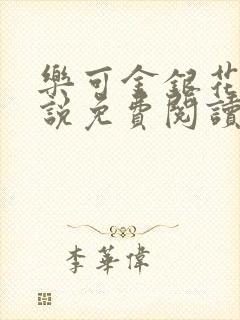 樂可金銀花
說免費閱讀
李華偉